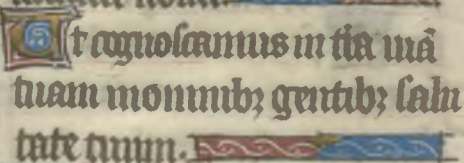 Ut cognoſcamus in tra uiā
tuam in omnibꝫ gentibꝫ ſalu
tare tuum.